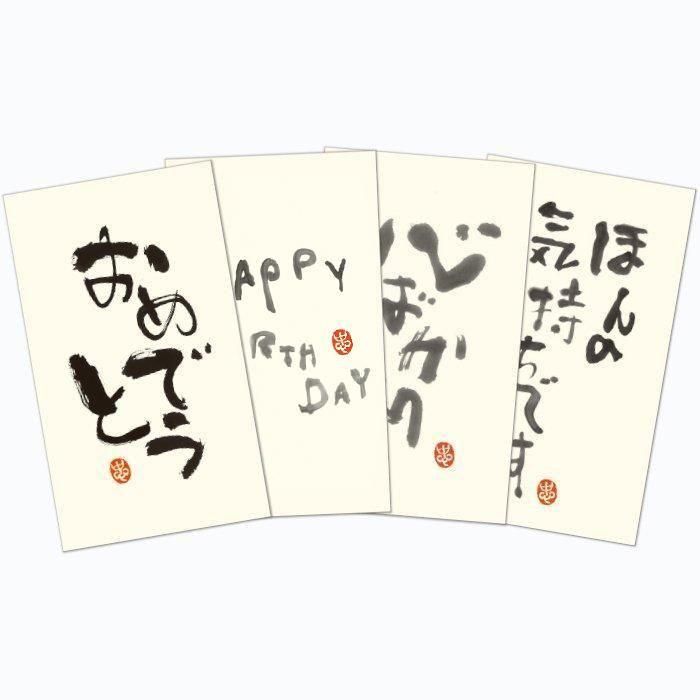 おめでとう
APPY
RTH
DAY
心ばかり
ほんの
気持ちです